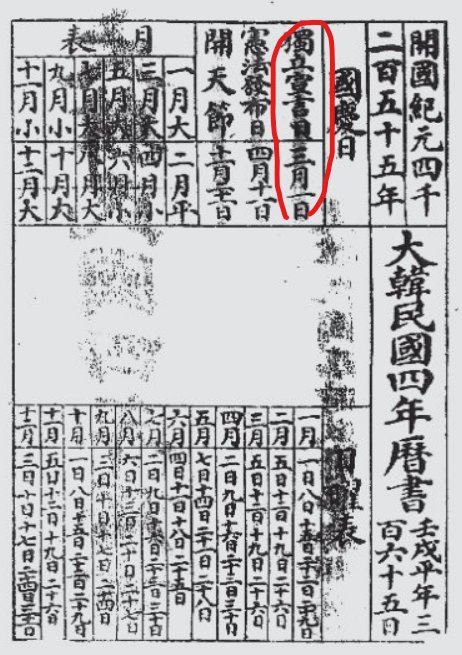 開國紀元四千
二百五十五年
大韓民國四年曆書
壬戌平年三
百六十五日
國慶日
獨立宣言日 三月一日
憲法發布日 四月十一日
開天節
月表
一月大 二月平
三月大 四月小
五月大 六月小
七月大 八月大
九月小 十月大
十一月小 十二月大
日曜表
一月 一日 八日 十五日 二十二日 二十九日
二月 五日 十二日 十九日 二十六日
三月 五日 十二日 十九日 二十六日
四月 二日 九日 十六日 二十三日 三十日
五月 七日 十四日 二十一日 二十八日
六月 四日 十一日 十八日 二十五日
七月 二日 九日 十六日 二十三日 三十日
八月 六日 十三日 二十日 二十七日
九月 三日 十日 十七日 二十四日
十月 一日 八日 十五日 二十二日 二十九日
十一月 五日 十二日 十九日 二十六日
十二月 三日 十日 十七日 二十四日 三十一日